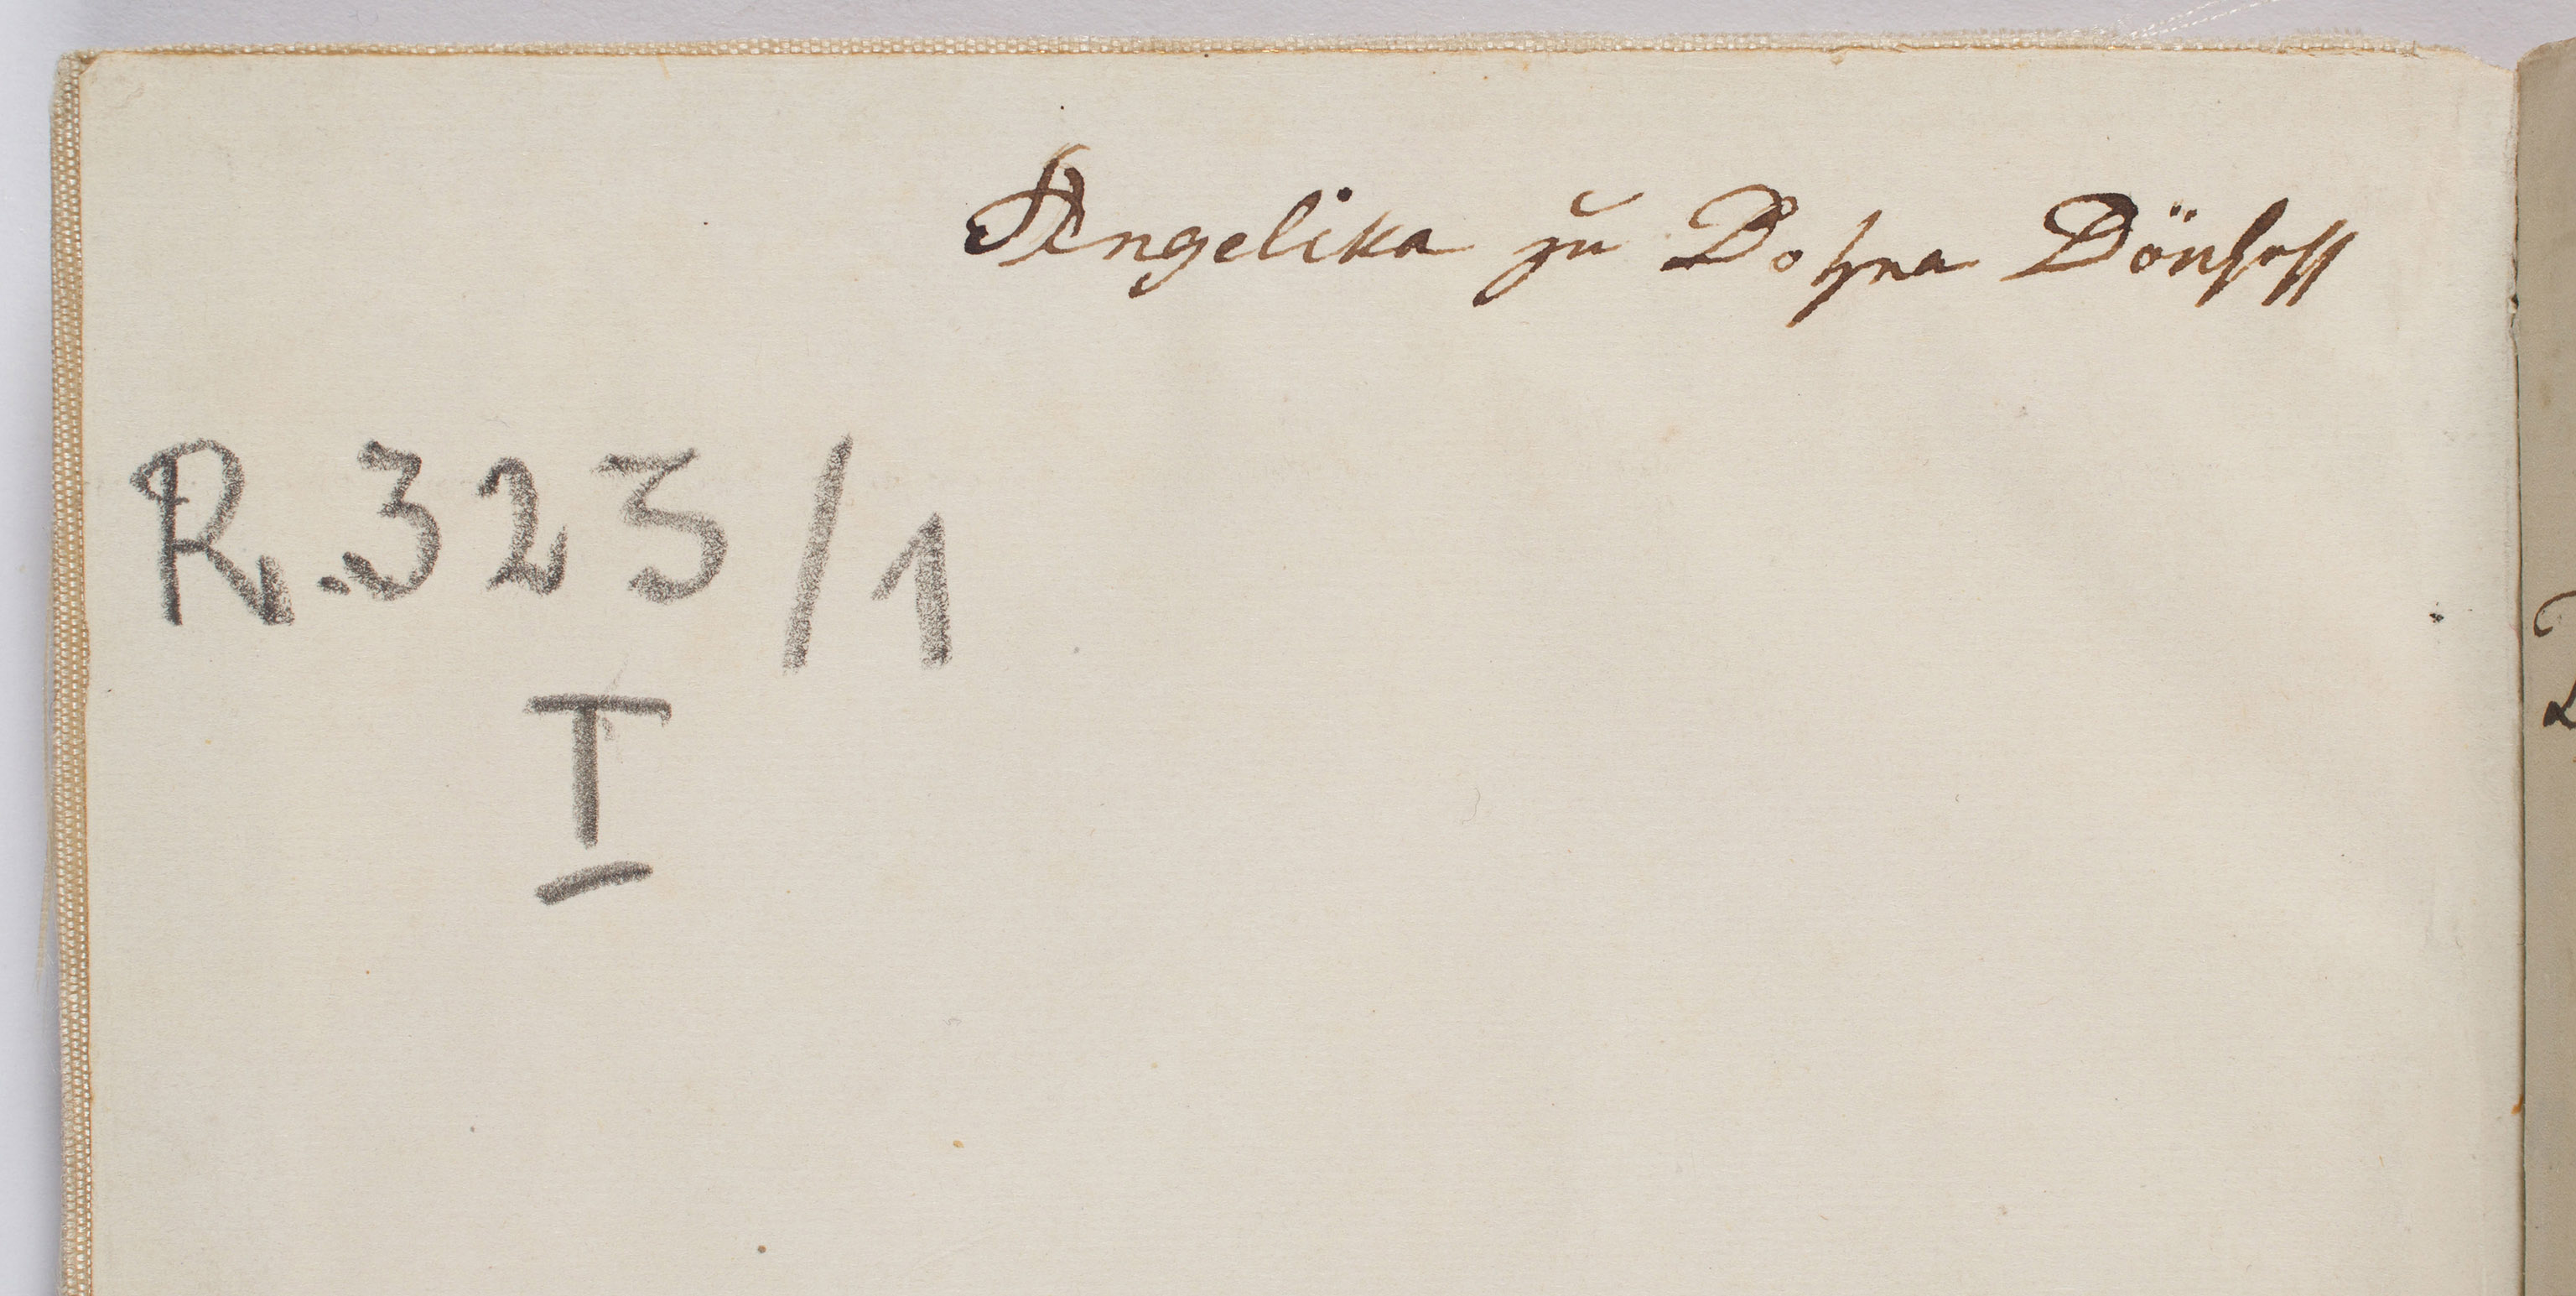 Angelika zu Dohna Dönhoff
R. 323/1
I